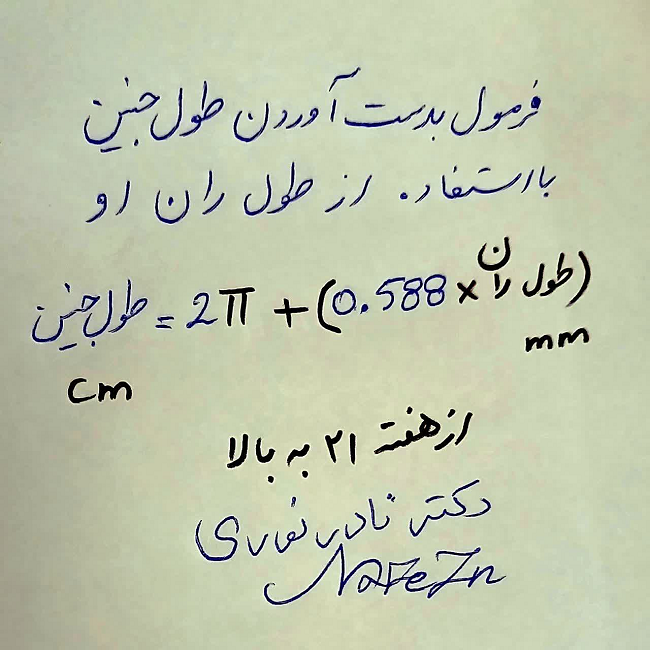 فرمول بدست آوردن طول جنین
با استفاده از طول ران او
طول جنین = 2π + (0.588 × طول ران)
cm mm
از هفته ۲۱ به بالا
دکتر نادر نوری